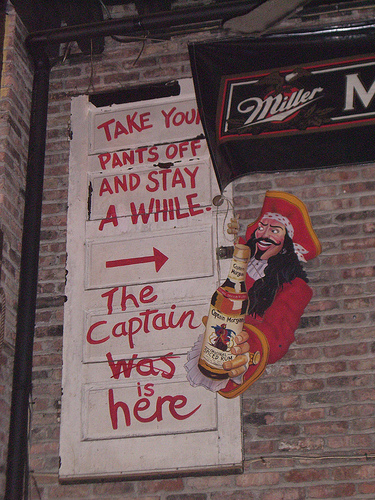 TAKE YOU
PANTS OFF
AND STAY
A WHILE.
The
Captain
Was
is
here
Miller
M
Captain
Morgan
Captain Morgan
SPICED RUM